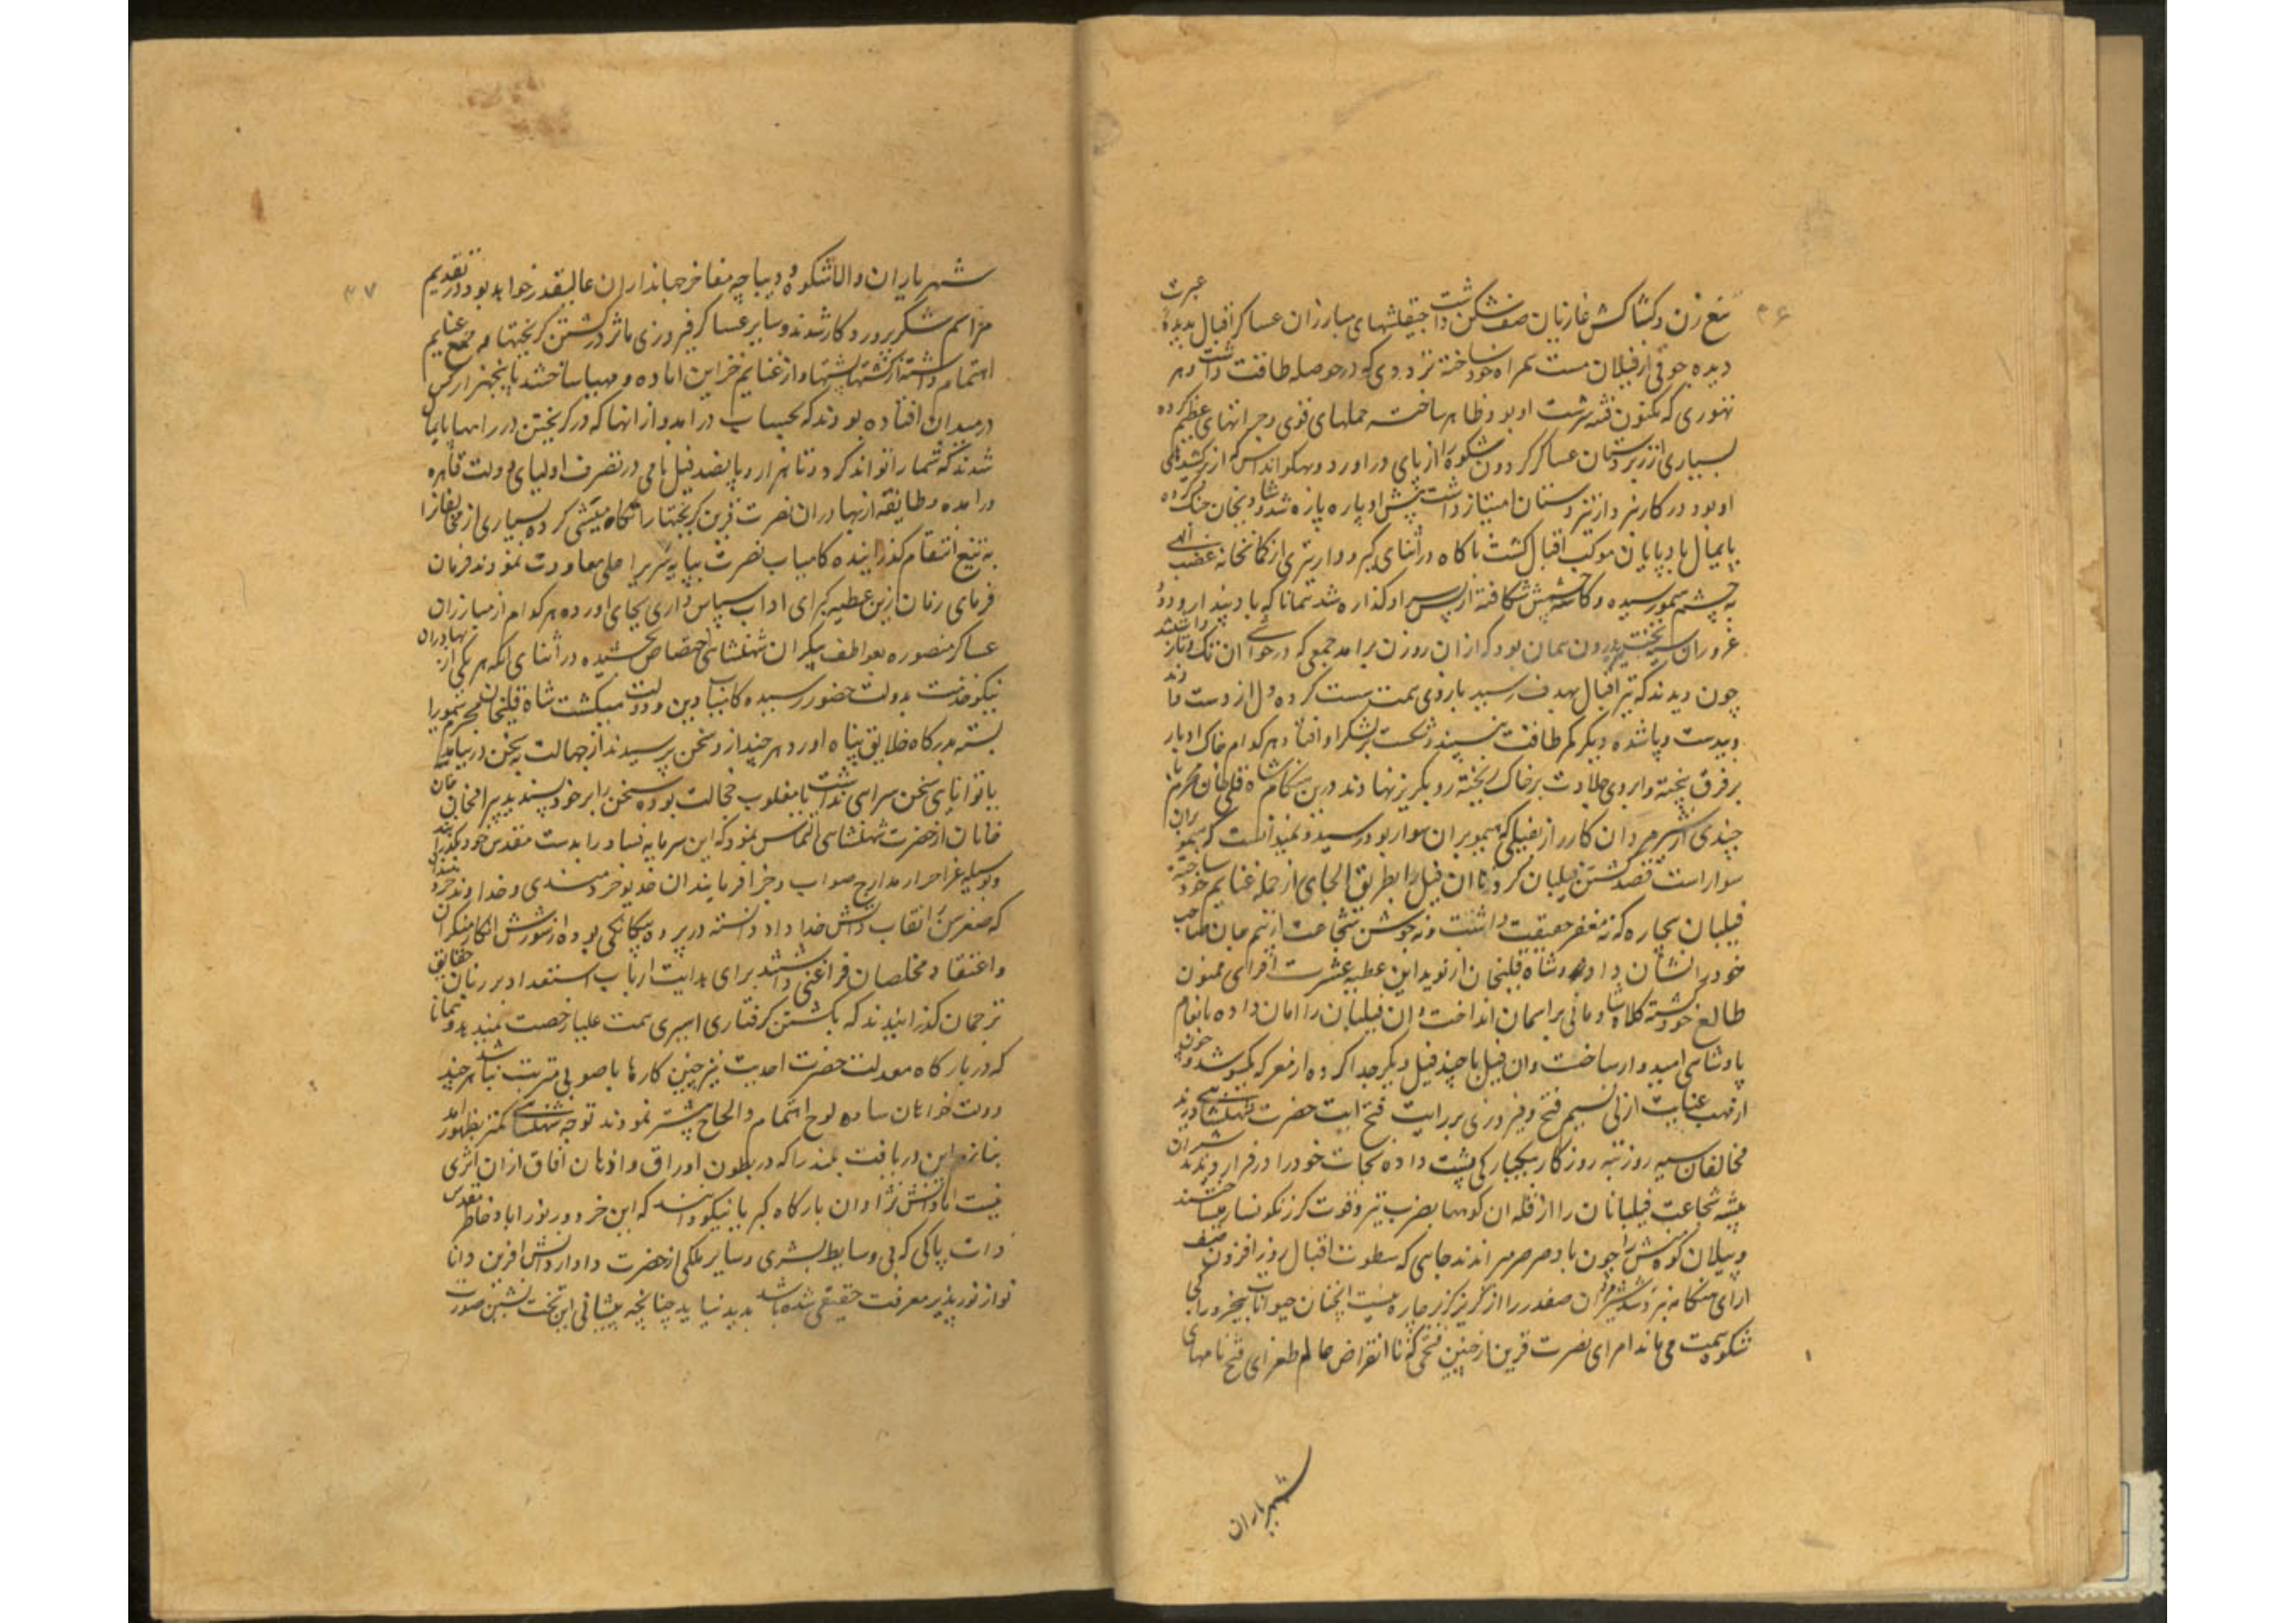 ۳۶
تیغ زن و کشاکش غازیان صف شکن داشت چپقلشهای مبارزان عساکر اقبال بدیده عبرت
دیده جوقی از فیلان مست همراه خود ساخته تردودی که در حوصله طاقت داشت و هر
تهوری که مکنون فتنه سرشت او بود ظاهر ساخت حملهای قوی و جراتهای عظیم کرده
بسیاری از زبردستان عساکر گردون شکوه را از پای در اورد و بهگوانداس که از
او بود در کارنبرد از تیزدستان امتیاز داشت پیش او پاره پاره شد و شادیخان
پایمال بادپایان موکب اقبال گشت ناگاه در اثنای گیر و دار تیری از کمانخانه غضب الهی
به چشم هیمو رسیده و کاسه چشمش شکافته از پس سر او گذاره شد همانا که باد پندار و دود
غرور ان سیه بخت درون همان بود که از ان روزن برامد جمعی که در حوالی ان تک و تاز داشتند
چون دیدند که تیر اقبال بهدف رسید بازوی همت سست کرده دل از دست دادند
و بیدست و پا شده دیگر کمر طاقت نبستند و شکست بر لشکر او افتاد هر کدام خاک ادبار
بر فرق بیخته و ابروی جلادت بر خاک ریخته رو بگریز نهادند درین هنگام شاه قلی خان محرم با
چندی از شیر مردان کارزار بفیلی که هیمو بران سوار بود رسید و نمیدانست که هیمو بران
سوار است قصد کشتن فیلبان کرد تا ان فیل را بطریق الجای از جمله غنایم خود ساخته
فیلبان بیچاره که نه مغفر حقیقت داشت و نه جوشن شجاعت از بیم جان صاحب
خود را نشان داد و شاه قلیخان از نوید این عطیه عشرت افزای ممنون
طالع خود گشته کلاه شادمانی بر اسمان انداخت و ان فیلبان را امان داده بانعام
پادشاهی امیدوار ساخت و ان فیل با چند فیل دیگر جدا کرده از معرکه بیکسو شد و چون
از مهب عنایت ازلی نسیم فتح و فیروزی بر رایت فتح ایت حضرت شهنشاهی وزید
مخالفان سیه روز تبه روزگار بیکبارگی پشت داده نجات خود را در فرار دیدند شیران
بیشه شجاعت فیلبانان را از قله ان کوهها بضرب تیر و قوت گرز نگونسار میساختند
و پیلان کوه وش را چون باد صرصر میراندند جایی که سطوت اقبال روزافزون صف
ارای هنگامه نبرد شد شیرمردان صفدر را از گریز گزیر چاره نیست انچنان حیوانات بیخرد را کی
شکوه همت می ماند امرای نصرت قرین از چنین فتحی که تا انقراض عالم طغرای فتح نامهای
شهریاران
۳۷
شهریاران والاشکوه و دیباچه مفاخر جهانداران عالیقدر خواهد بود در تقدیم
مراسم شکر پرورد کار شدند و سایر عساکر فیروزی ماثر در کشتن گریختها و جمع غنایم
اهتمام داشته از کشتها پشتها و از غنایم خزاین اماده و مهیا ساختند پنجهزار کس
در میدان افتاده بودند که بحساب درامد و از انها که در گریختن در راهها پایمال
شدند که شمار انرا تواند کرد و تا هزار و پانصد فیل نامی در تصرف اولیای دولت قاهره
درامده و طایفه از بهادران نصرت قرین گریختها را تکامیشی کرده بسیاری از مخالفانرا
به تیغ انتقام گذرانیده کامیاب نصرت بپایه سریر اعلی معاودت نمودند فرمان
فرمای زمان ازین عطیه کبرای اداب سپاس داری بجای اورده هر کدام از مبارزان
عساکر منصوره بعواطف بیکران شهنشاهی اختصاص بخشیده در اثنای انکه هر یکی از بهادران
نیکو خدمت بدولت حضور رسیده کامیاب دین و دولت میگشت شاه قلیخان محرم هیمو را
بسته بدرگاه خلایق پناه اورد هر چند از و سخن پرسیدند از جهالت به سخن در نیامد
یا توانایی سخن سرایی نداشت یا مغلوب خجالت بوده سخن را بر خود نپسندید بیرامخان خان
خانان از حضرت شهنشاهی التماس نمود که این سرمایه فساد را بدست مقدس خود بگذرانند
و بوسیله غزا احراز مدارج صواب و جزا فرمایند ان خدیو خردمندی و خداوند
که صغر سن را نقاب دانش خداداد دانسته در پرده بیگانگی بوده از شورش انکار منکران
و اعتقاد مخلصان فراغی داشتند برای هدایت ارباب استعداد بر زبان حقایق
ترجمان گذرانیدند که بکشتن گرفتاری اسیری همت علیا رخصت نمیدهد و همانا
که در بارگاه معدلت حضرت احدیت نیز چنین کارها با صوبی مترتب نباشد هر چند
دولت خواهان ساده لوح اهتمام و الحاح بیشتر نمودند توجه شهنشاهی کمتر بظهور امد
بنازم این دریافت بلند را که در بطون اوراق و اذهان افاق از ان اثری
نیست اما دانش نژادان بارگاه کبریا نیکو دانند که این خرد دور نورا باد خاطر مقدس
ذات پاکی که بی وسایط بشری و سایر ملکی از حضرت دادار دانش افرین دانا
نواز نور پذیر معرفت حقیقی شده باشد بدید نیاید چنانچه پیشانی این تخت نشین صورت